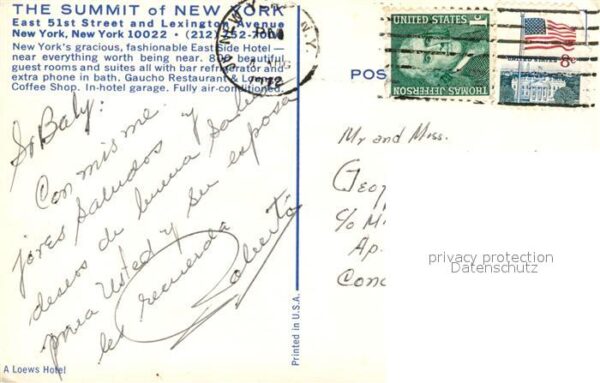 THE SUMMIT of NEW YORK
East 51st Street and Lexington Avenue
New York, New York 10022 • (212) 752-7000
New York's gracious, fashionable East Side Hotel —
near everything worth being near. 800 beautiful
guest rooms and suites all with bar refrigerator and
extra phone in bath. Gaucho Restaurant & Lounge.
Coffee Shop. In-hotel garage. Fully air-conditioned.
Con mis me
jores Saludos y
deseos de buena salud
para Usted y su esposa
les recuerda
Roberto
A Loews Hotel
Printed in U.S.A.
NEW YORK, N.Y.
1972
UNITED STATES 1c
THOMAS JEFFERSON
UNITED STATES 8c
POS
Mr and Miss.
Geor
c/o M
Ap.
Conc
privacy protection
Datenschutz